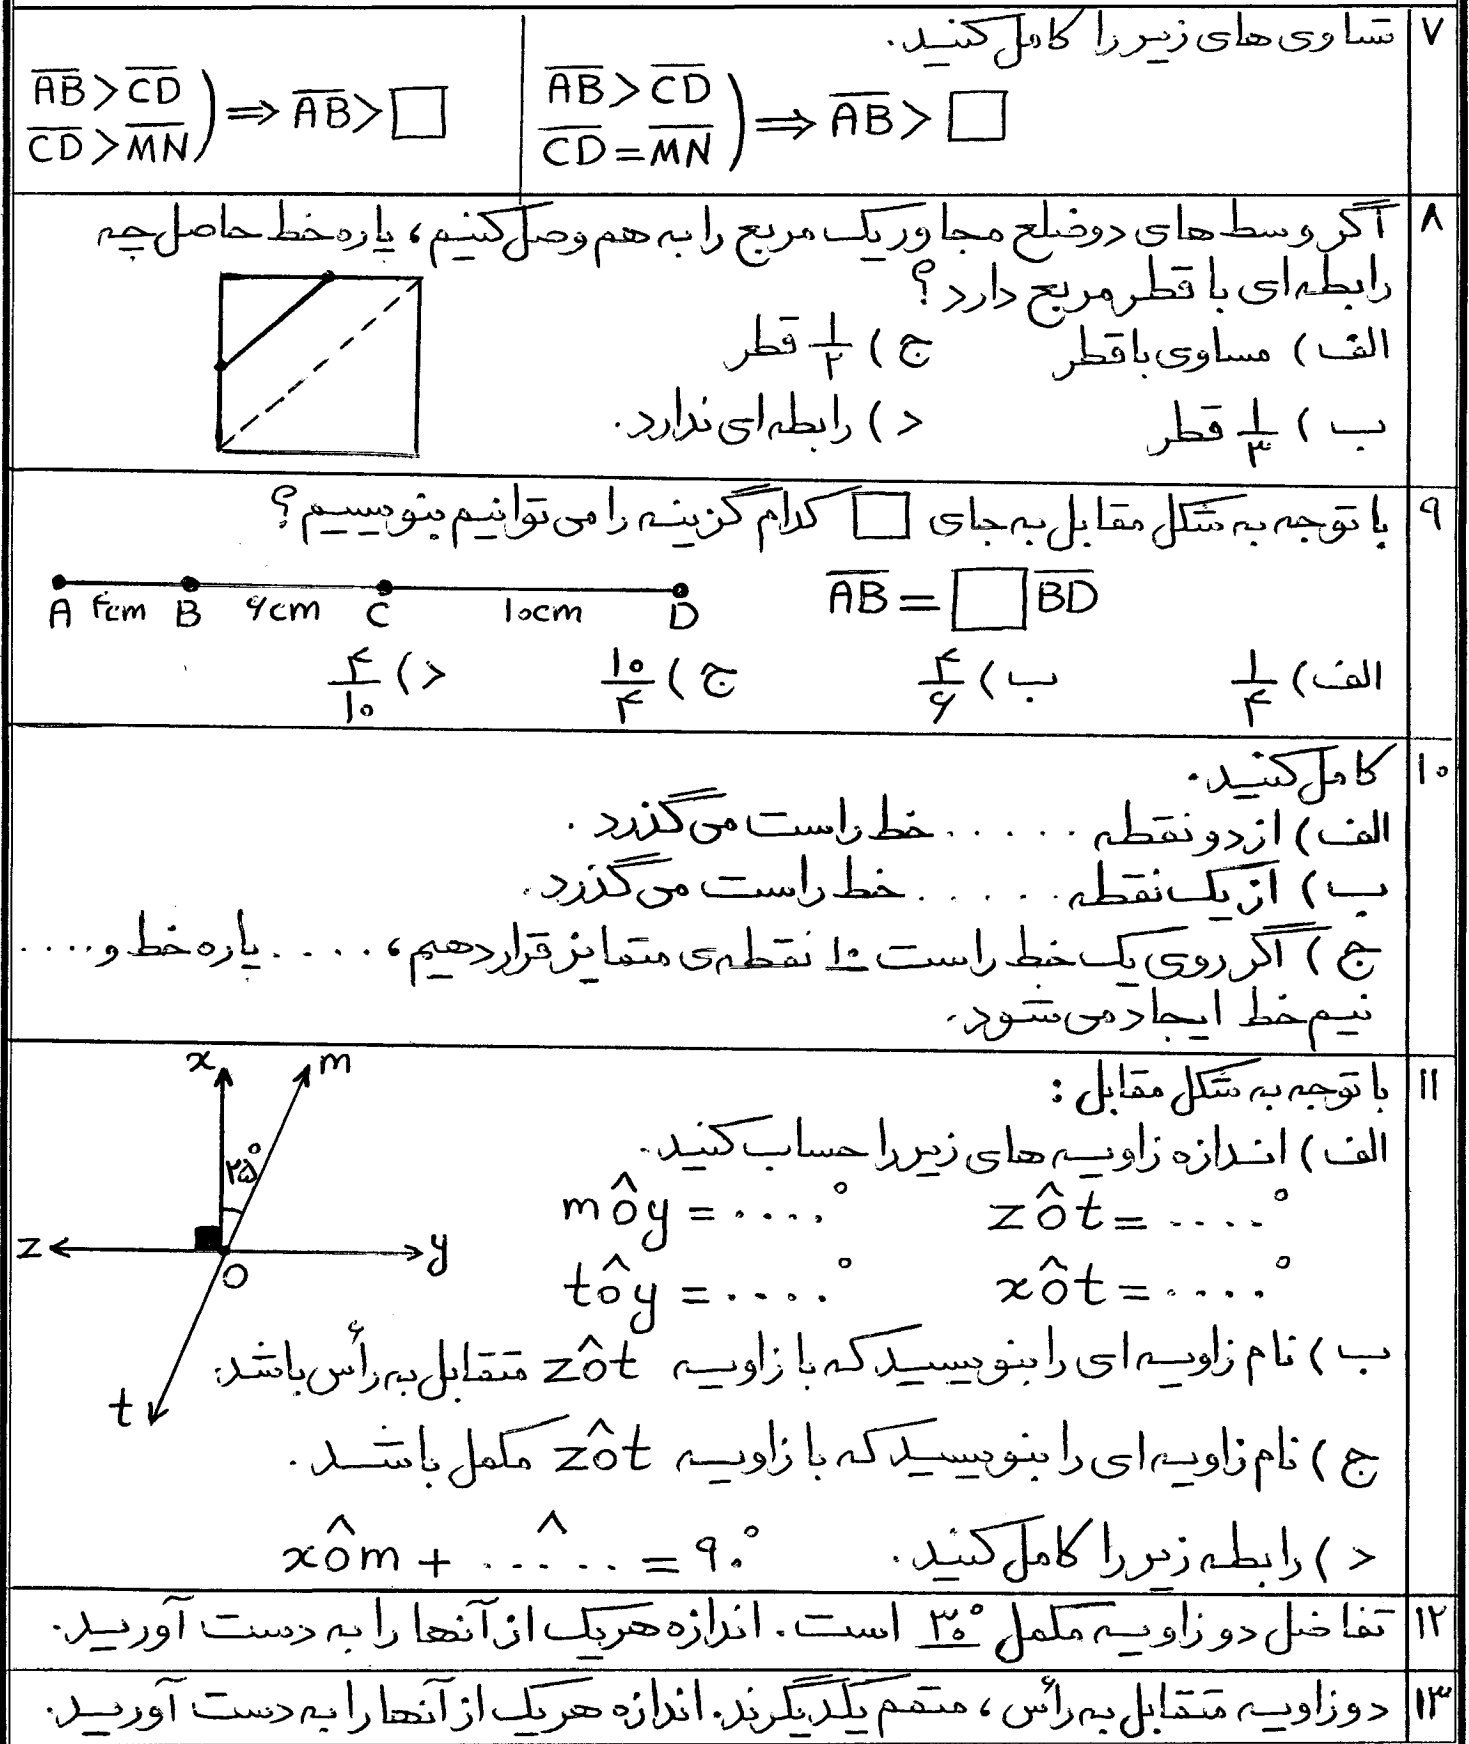 ۷ تساوی های زیر را کامل کنید.
AB > CD
CD = MN ) ⇒ AB > □
AB > CD
CD > MN ) ⇒ AB > □
۸ اگر وسط های دو ضلع مجاور یک مربع را به هم وصل کنیم، پاره خط حاصل چه
رابطه ای با قطر مربع دارد؟
الف) مساوی با قطر ج) ۱/۲ قطر
ب) ۱/۳ قطر د) رابطه ای ندارد.
۹ با توجه به شکل مقابل به جای □ کدام گزینه را می توانیم بنویسیم؟
AB = □ BD
A ۴cm B ۶cm C ۱۰cm D
الف) ۱/۴ ب) ۴/۶ ج) ۱۰/۴ د) ۴/۱۰
۱۰ کامل کنید.
الف) از دو نقطه ..... خط راست می گذرد.
ب) از یک نقطه ...... خط راست می گذرد.
ج) اگر روی یک خط راست ۱۰ نقطه ی متمایز قرار دهیم، ..... پاره خط و .....
نیم خط ایجاد می شود.
۱۱ با توجه به شکل مقابل:
الف) اندازه زاویه های زیر را حساب کنید.
zôt = ....° môy = ....°
xôt = ....° tôy = ....°
x m
۲۵°
z O y
t
ب) نام زاویه ای را بنویسید که با زاویه zôt متقابل به رأس باشد.
ج) نام زاویه ای را بنویسید که با زاویه zôt مکمل باشد.
د) رابطه زیر را کامل کنید. xôm + ..^... = ۹۰°
۱۲ تفاضل دو زاویه مکمل ۳۰° است. اندازه هریک از آنها را به دست آورید.
۱۳ دو زاویه متقابل به رأس، متمم یکدیگرند. اندازه هریک از آنها را به دست آورید.